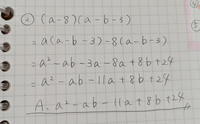 ② (a-8)(a-b-3)
=a(a-b-3)-8(a-b-3)
=a²-ab-3a-8a+8b+24
=a²-ab-11a+8b+24
A. a²-ab-11a+8b+24